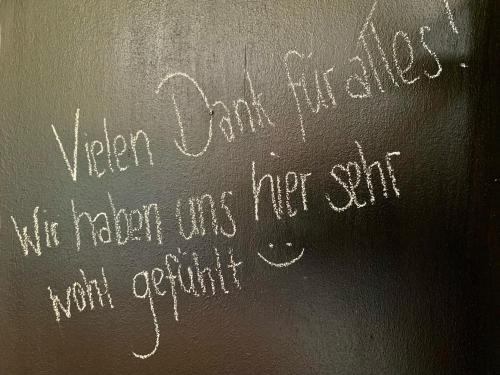 Vielen Dank für alles!
Wir haben uns hier sehr
wohl gefühlt